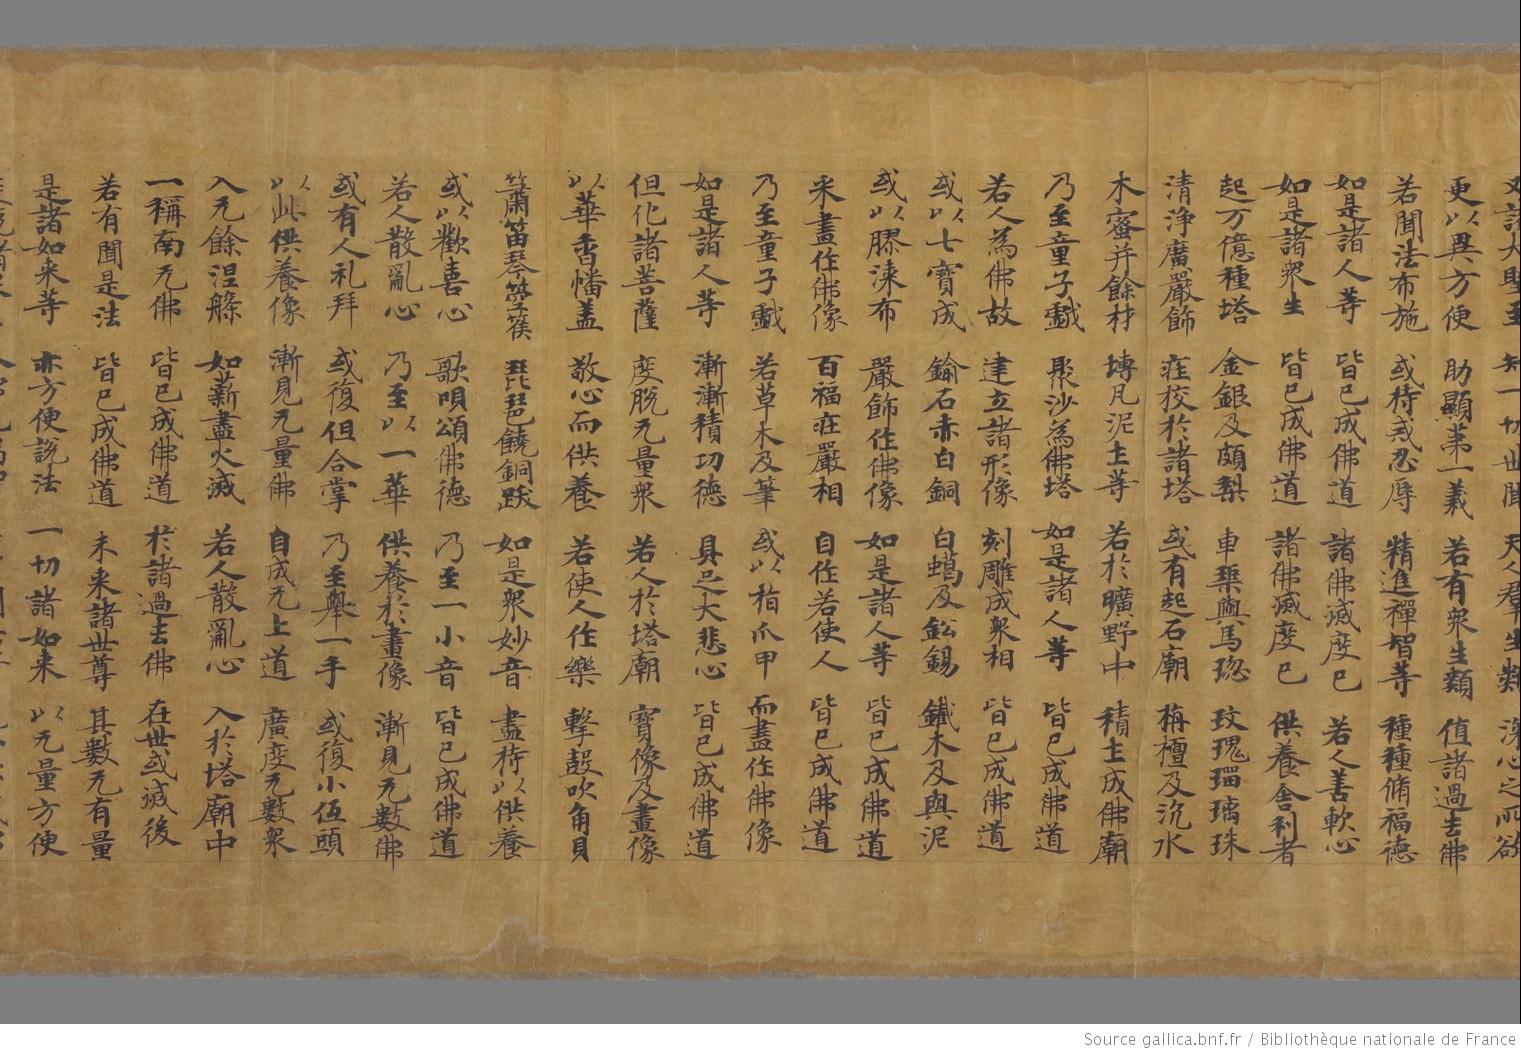 又諸大聖主 知一切世間 天人羣生類 深心之所欲
更以異方便 助顯第一義 若有衆生類 值諸過去佛
若聞法布施 或持戒忍辱 精進禪智等 種種脩福德
如是諸人等 皆已成佛道 諸佛滅度已 若人善軟心
如是諸衆生 皆已成佛道 諸佛滅度已 供養舍利者
起万億種塔 金銀及頗梨 車璖與馬瑙 玫瑰瑠璃珠
清淨廣嚴飾 莊校於諸塔 或有起石廟 栴檀及沉水
木蜜并餘材 塼瓦泥土等 若於曠野中 積土成佛廟
乃至童子戲 聚沙為佛塔 如是諸人等 皆已成佛道
若人為佛故 建立諸形像 刻雕成衆相 皆已成佛道
或以七寶成 鍮石赤白銅 白鑞及鈆錫 鐵木及與泥
或以膠漆布 嚴飾作佛像 如是諸人等 皆已成佛道
采畫作佛像 百福莊嚴相 自作若使人 皆已成佛道
乃至童子戲 若草木及筆 或以指爪甲 而畫作佛像
如是諸人等 漸漸積功德 具足大悲心 皆已成佛道
但化諸菩薩 度脫无量衆 若人於塔廟 寶像及畫像
以華香幡盖 敬心而供養 若使人作樂 擊鼓吹角貝
簫笛琴箜篌 琵琶鐃銅跋 如是衆妙音 盡持以供養
或以歡喜心 歌唄頌佛德 乃至一小音 皆已成佛道
若人散亂心 乃至以一華 供養於畫像 漸見无數佛
或有人礼拜 或復但合掌 乃至舉一手 或復小伍頭
以此供養像 漸見无量佛 自成无上道 廣度无數衆
入无餘涅槃 如薪盡火滅 若人散亂心 入於塔廟中
一稱南无佛 皆已成佛道 於諸過去佛 在世或滅後
若有聞是法 皆已成佛道 未来諸世尊 其數无有量
是諸如来等 亦方便說法 一切諸如来 以无量方便
Source gallica.bnf.fr / Bibliothèque nationale de France